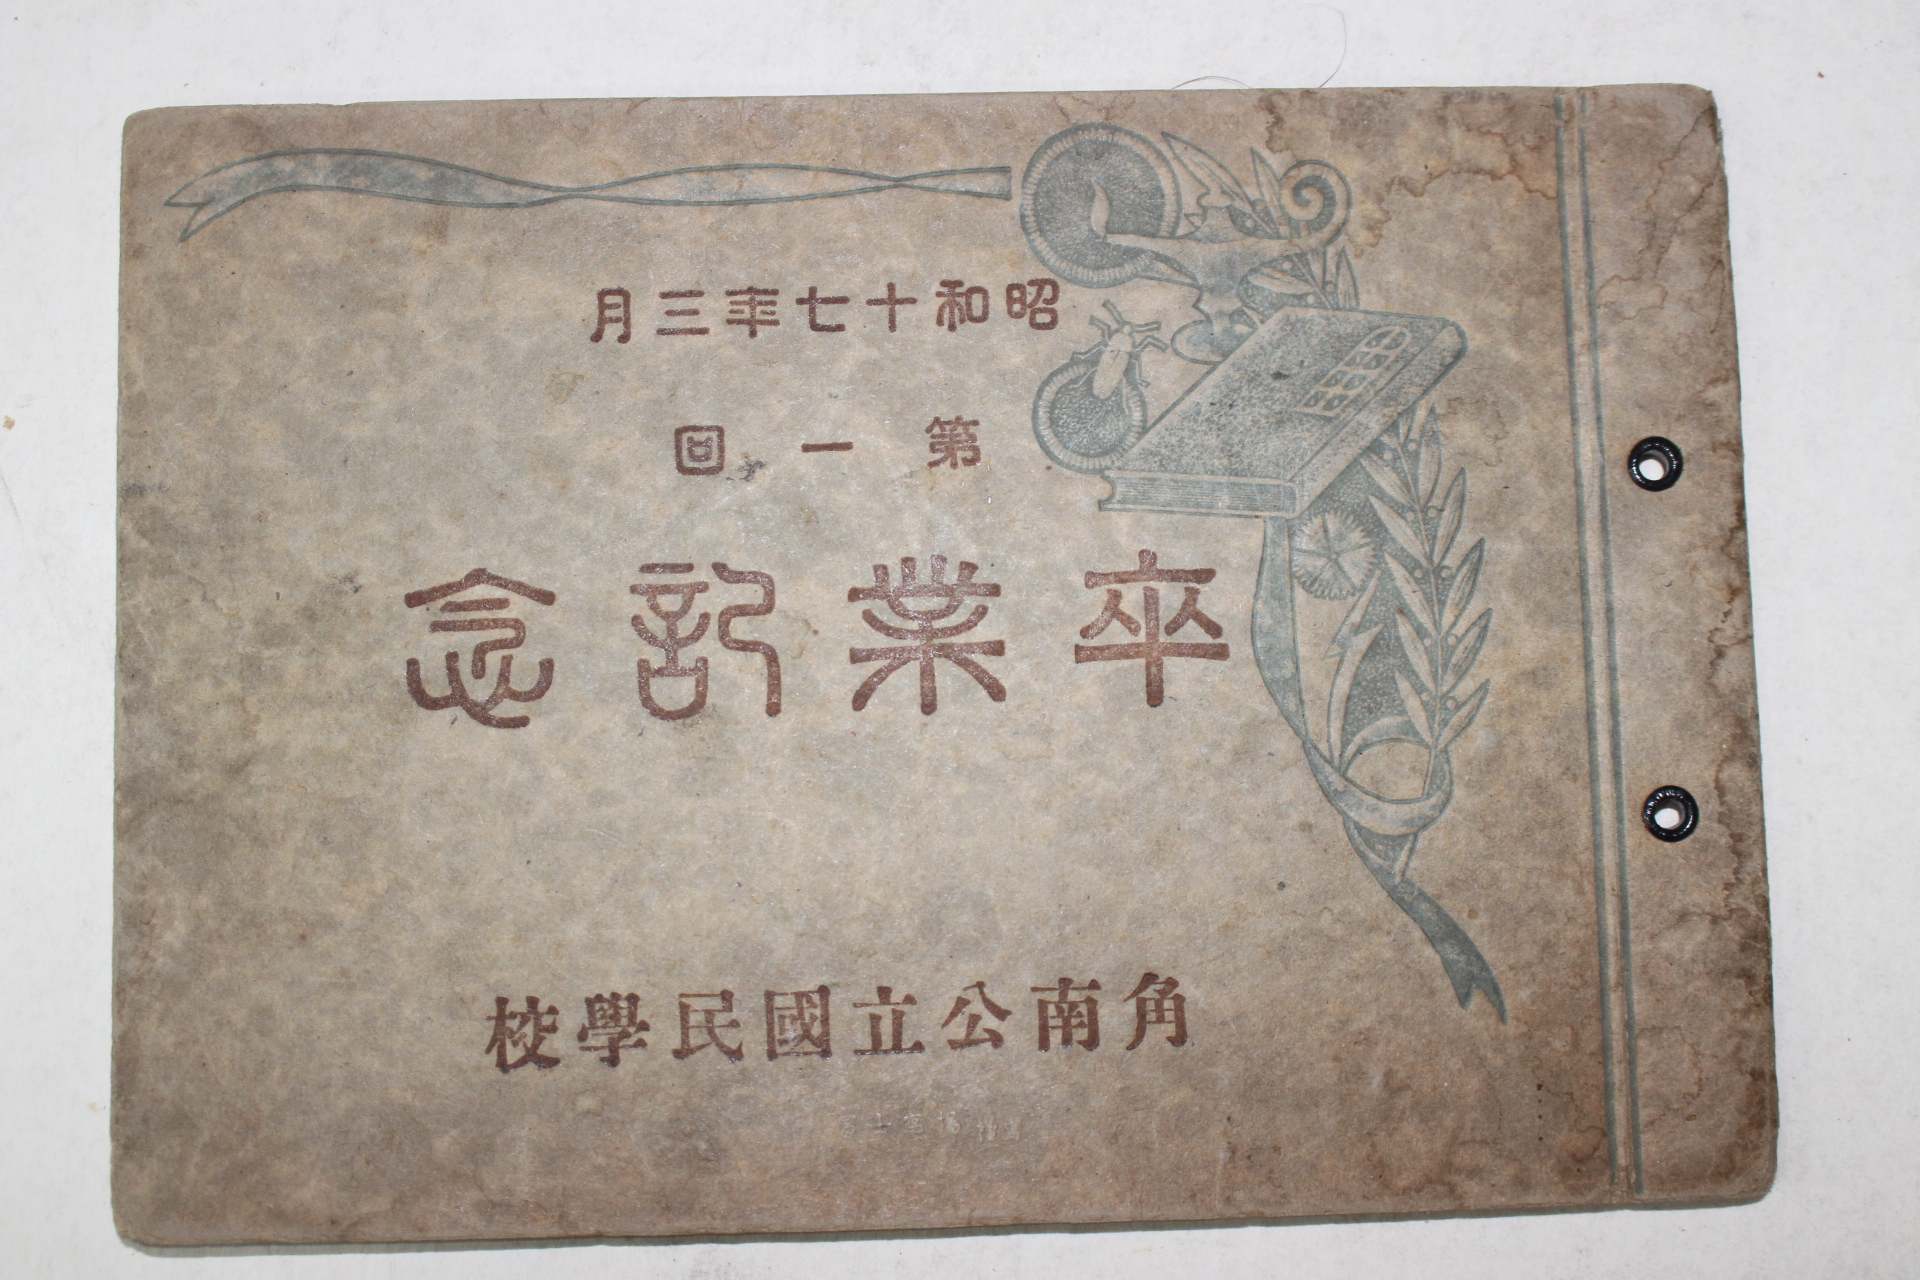 昭和十七年三月
第一回
卒業記念
角南公立國民學校